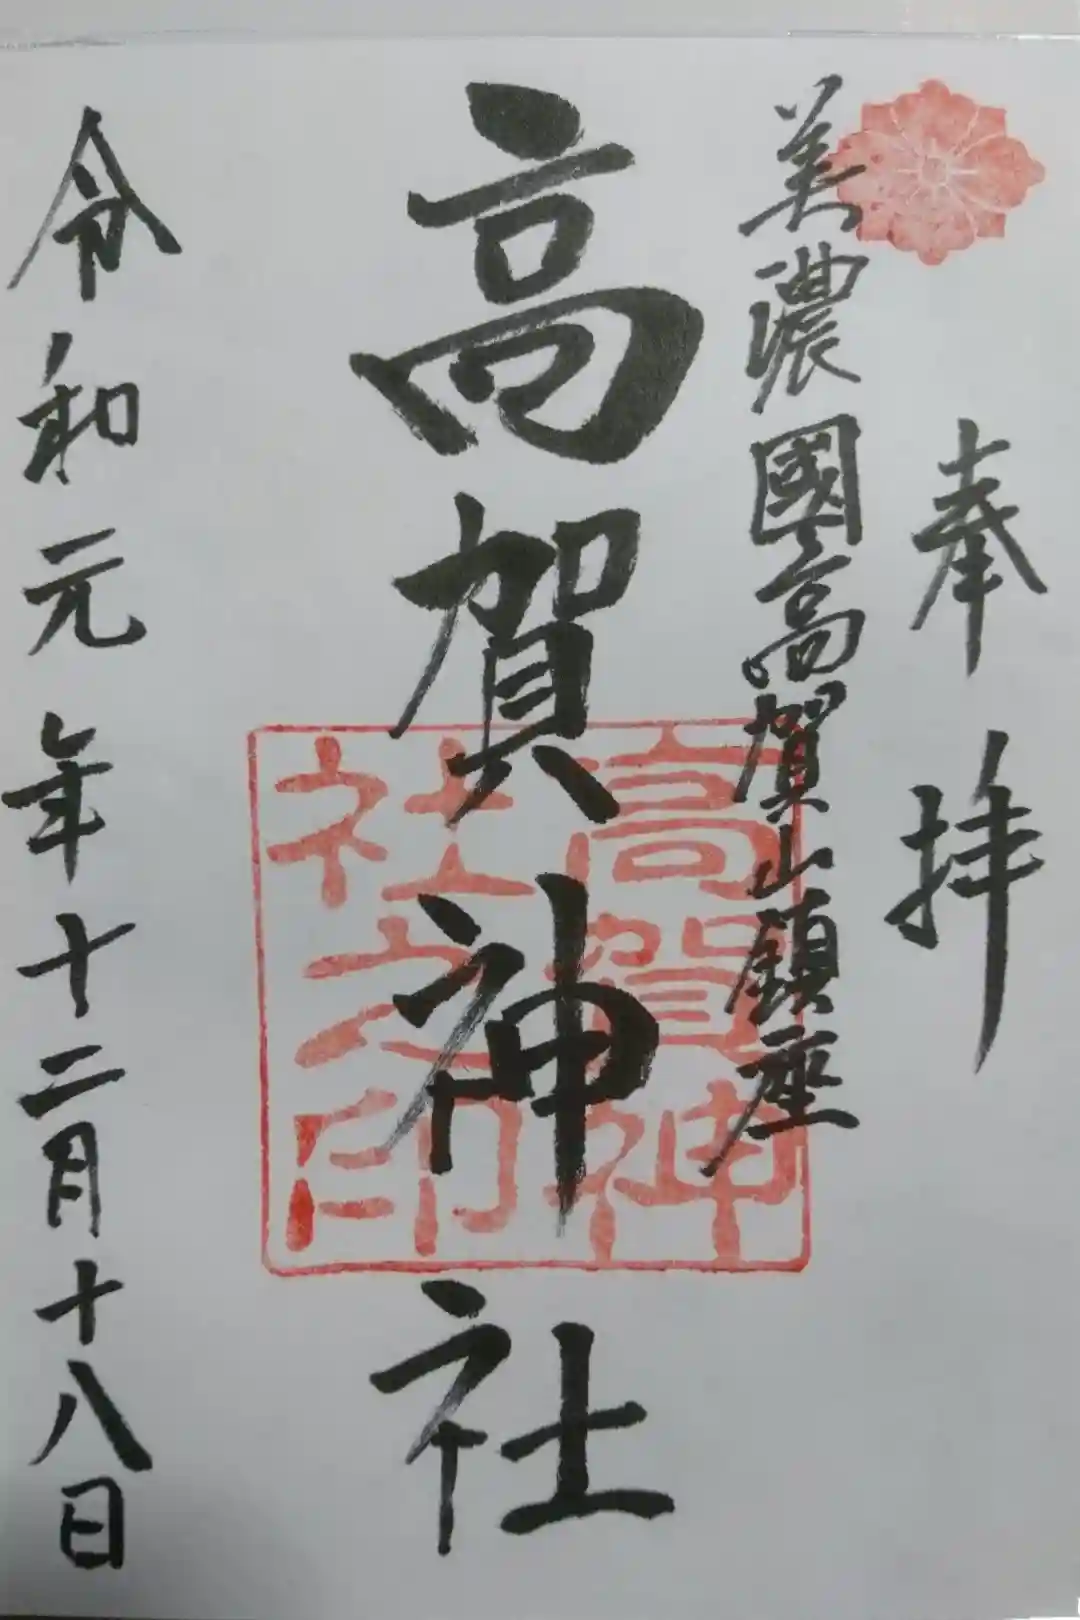 奉拝
美濃國高賀山鎮座
高賀神社
高賀神
社之印
令和元年十二月十八日